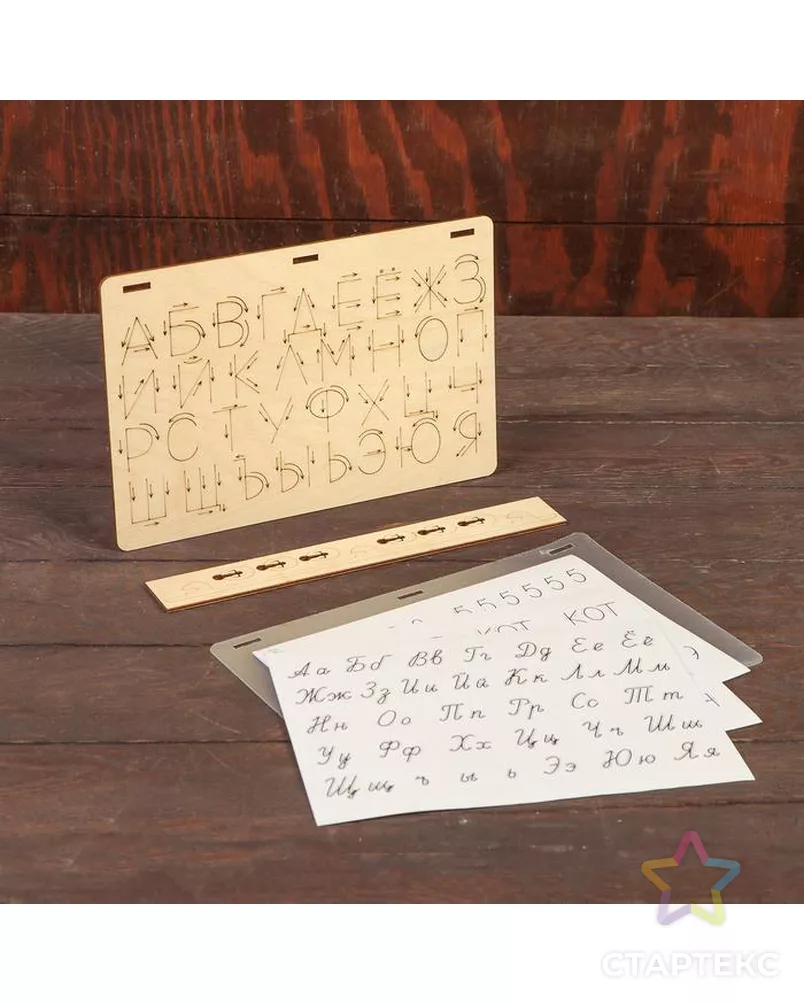 АБВГДЕЁЖЗ
ИЙКЛМНОП
РСТУФХЦЧ
ШЩЪЫЬЭЮЯ
555555
КОТ
КОТ
Аа Бб Вв Гг Дд Ее Ёё
Жж Зз Ии Йй Кк Лл Мм
Нн Оо Пп Рр Сс Тт
Уу Фф Хх Цц Чч Шш
Щщ ъ ы ь Ээ Юю Яя
СТАРТЕКС